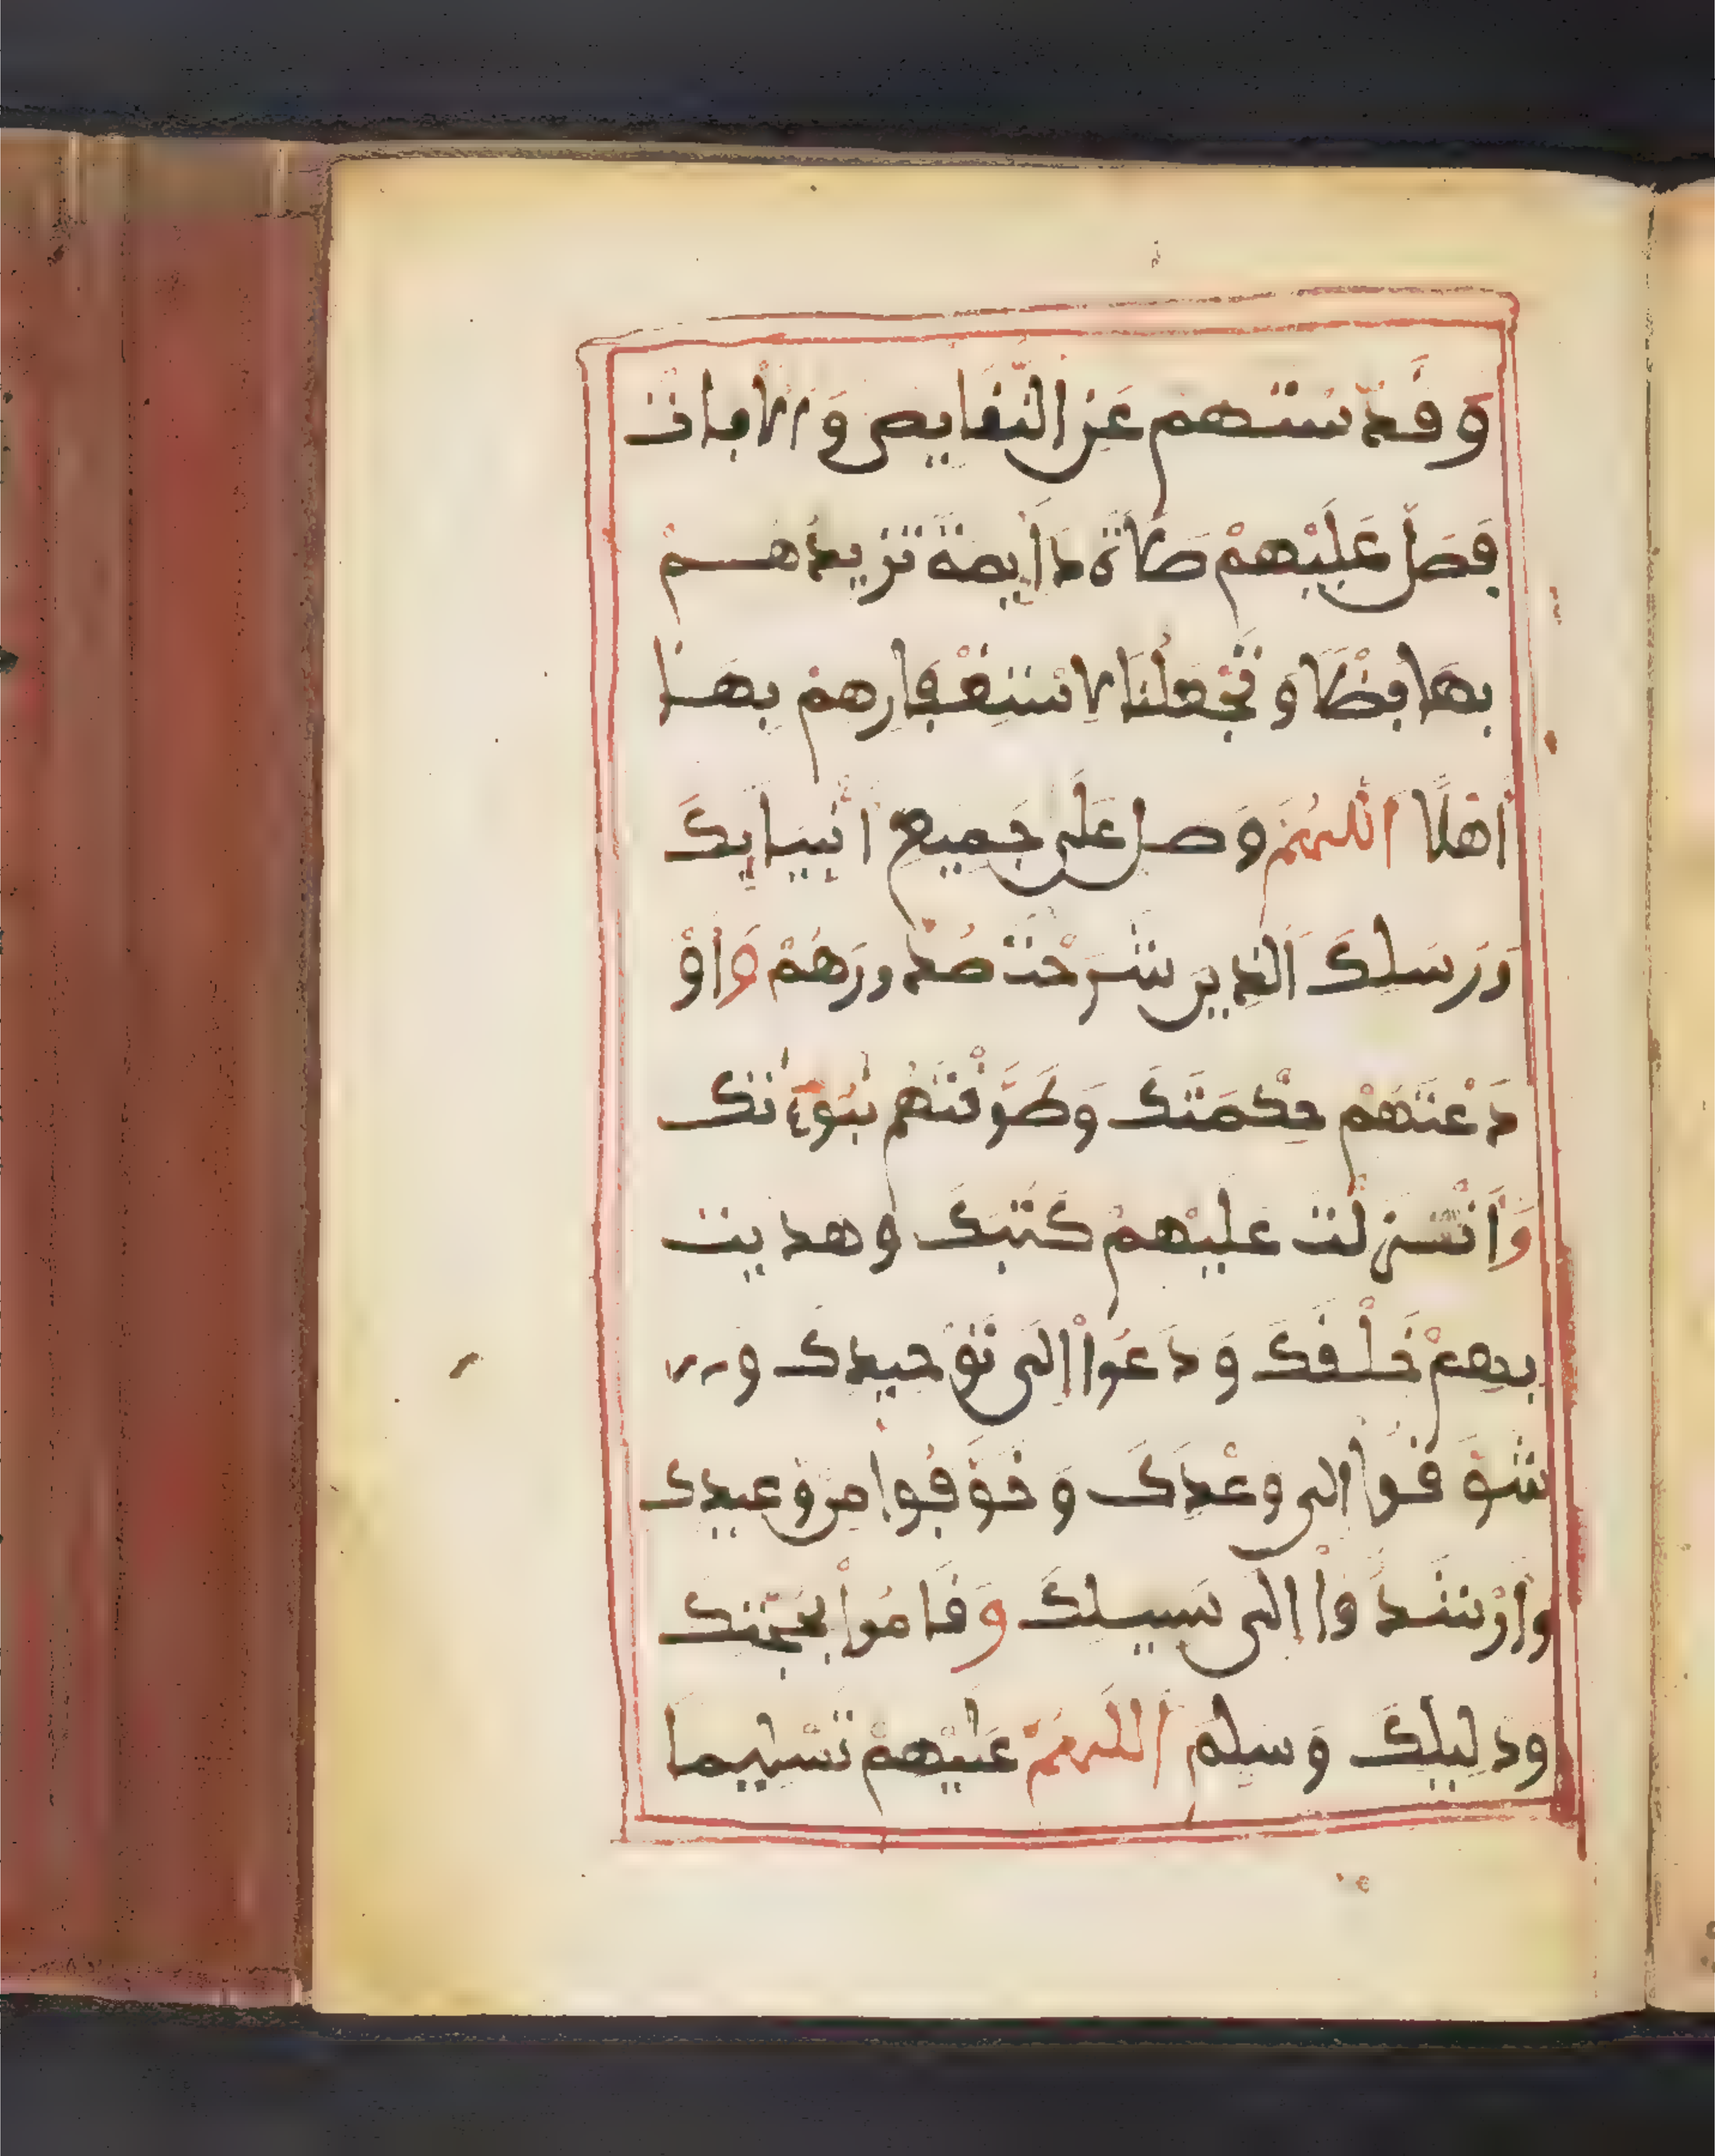 وَقَدَّسْتَهُمْ عَنِ النَّقَايِصِ وَالْأَفَاتِ
فَصَلِّ عَلَيْهِمْ صَلَاةً دَايِمَةً تَزِيدُهُمْ
بِهَا فَضْلًا وَتَجْعَلُنَا لِاسْتِغْفَارِهِمْ بِهَا
أَهْلًا اللهُمَّ وَصَلِّ عَلَى جَمِيعِ أَنْبِيَايِكَ
وَرَسلِكَ الَّذِينَ شَرَحْتَ صُدُورَهُمْ وَاوْ
دَعْتَهُمْ حِكْمَتَكَ وَطَوَّقْتَهُمْ نُبُوءَتَكَ
وَأَنْزَلْتَ عَلَيْهِمْ كُتُبَكَ وَهَدَيْتَ
بِهِمْ خَلْقَكَ وَدَعَوْا إِلَى تَوْحِيدِكَ وَ
شَوَّقُوا إِلَى وَعْدِكَ وَخَوَّفُوا مِنْ وَعِيدِكَ
وَأَرْشَدُوا إِلَى سَبِيلِكَ وَقَامُوا بِحُجَّتِكَ
وَدَلِيلِكَ وَسَلِّمِ اللهُمَّ عَلَيْهِمْ تَسْلِيمًا